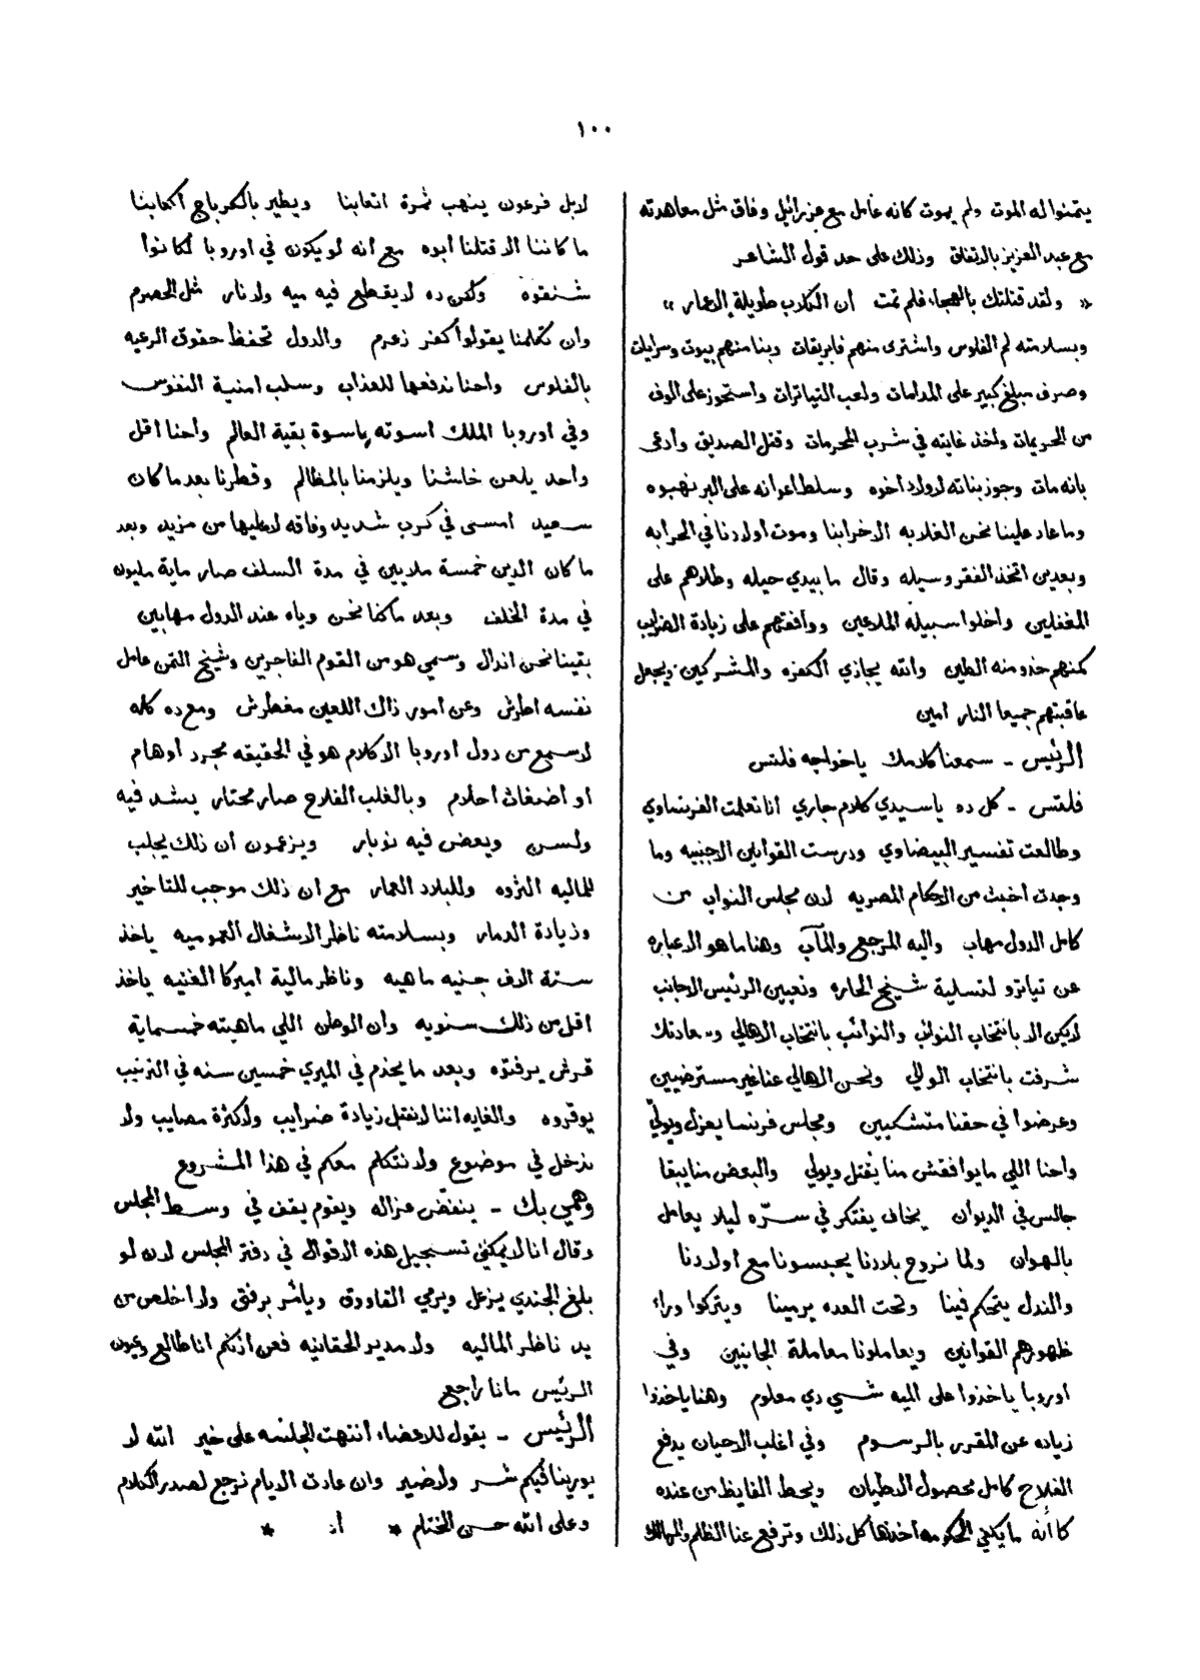 ١٠٠
يتمنوا له الموت ولم يموت كانه عامل مع عزرائيل وفاق مثل معاهدته
مع عبد العزيز بالاتفاق وذلك على حد قول الشاعر
« ولقد قتلتك بالهجاء فلم تمت ان الكلاب طويلة الاعمار »
وبسلامته لم الفلوس واشترى منهم فابريقات وبنا منهم بيوت وسرايات
وصرف مبلغ كبير على المدامات ولعب التياترات واستحوز على الوف
من الحريمات واخذ غايته في شرب المحرمات وقتل الصديق وادعى
بانه مات وجوز بناته لاولاد اخوه وسلط اعوانه على البر نهبوه
وما عاد علينا نحن الغلابه الا خرابنا وموت اولادنا في الحرابه
وبعدين اتخذ الفقر وسيله وقال ما بيدي حيله وطلاهم على
المغفلين واخلوا سبيله الملاعين ووافقتهم على زيادة الضرايب
كمنهم خدو منه الطين والله يجازي الكفره والمشركين ويجعل
عاقبتهم جميعا النار امين
الرئيس ـ سمعنا كلامك ياخواجه فلتس
فلتس ـ كل ده ياسيدي كلام جاري انا تعلمت الفرنساوي
وطالعت تفسير البيضاوي ودرست القوانين الاجنبيه وما
وجدت اخبث من الاحكام المصريه لان مجلس النواب من
كامل الدول مهاب واليه المرجع والمآب وهنا ما هو الا عباره
عن تياترو لتسلية شيخ الحاره وتعيين الرئيس الاجانب
لايكن الا بانتخاب النوائب والنوائب بانتخاب الاهالي وسعادتك
شرفت بانتخاب الوالي ونحن الاهالي عنا غير مسترضيين
وعرضوا في حقنا متشكيين ومجلس فرنسا يعزل ويولّي
واحنا اللي ما يوافقش منا يقتل ويولي والبعض منا يبقا
جالس في الديوان يخاف يفتكر في سرّه ليلا يعامل
بالهوان ولما نروح بلادنا يحبسونا مع اولادنا
والندل يتحكم فينا وتحت العده يرمينا ويتركوا وراء
ظهورهم القوانين ويعاملونا معاملة الجانيين وفي
اوروبا ياخذوا على الميه شيي دي معلوم وهنا ياخذوا
زياده عن المقرر بالرسوم وفي اغلب الاحيان يدفع
الفلاح كامل محصول الاطيان ويحط الفايظ من عنده
كاأنه ما يكفي الحكومه اخذها كل ذلك وترفع عنا الظلم والمهالك
لابل فرعون ينهب ثمرة اتعابنا ويطير بالكرباج اكعابنا
ما كاننا الا قتلنا أبوه مع انه لو يكون في اوروبا لكانوا
شنقوه ولكن ده لا يقطع فيه ميه ولا نار مثل الحصرم
وان تكلمنا يقولوا كفر زعرم والدول تحفظ حقوق الرعيه
بالفلوس واحنا ندفعها للعذاب وسلب امنية النفوس
وفي اوروبا الملك اسوته باسوة بقية العالم واحنا اقل
واحد يلعن خاشنا ويلزمنا بالمظالم وقطرنا بعد ما كان
سعيد امسى في كرب شديد وفاقه لا عليها من مزيد وبعد
ما كان الدين خمسة ملايين في مدة السلف صار ماية مليون
في مدة الخلف وبعد ما كنا نحن وياه عند الدول مهابين
بقينا نحن اندال وسمي هو من القوم الفاجرين وشيخ التمن عامل
نفسه اطرش وعن امور ذاك اللعين مغطرش ومع ده كله
لاسمع من دول اوروبا الا كلام هو في الحقيقه مجرد أوهام
او اضغاث احلام وبالغلب الفلاح صار محتار يشد فيه
ولسن ويعض فيه نوبار ويزعمون ان ذلك يجلب
للماليه الثروه وللبلاد العمار مع ان ذلك موجب للتاخير
وزيادة الدمار وبسلامته ناظر الاشغال العموميه ياخذ
ستة الاف جنيه ماهيه وناظر مالية اميركا الغنيه ياخذ
اقل من ذلك سنويه وابن الوطن اللي ماهيته خمسماية
قرش يرفتوه وبعد ما يخدم في الميري خمسين سنه في الترتيب
يوقروه والغايه اننا لا نقبل زيادة ضرايب ولا كثرة مصايب ولا
ندخل في موضوع ولا نتكلم معكم في هذا المشروع
وهمي بك ـ ينفض غزاله ويقوم يقف في وسط المجلس
وقال انا لا يمكني تسجيل هذه الاقوال في دفتر المجلس لان لو
بلغ الجندي يزعل ويرمي القاووق ويأمر برفتي ولا اخلص من
يد ناظر الماليه ولا مدير الحقانيه فعن اذنكم انا طالع وعيون
الرئيس ما نا راجع
الرئيس ـ يقول للاعضاء انتهت الجلسه على خير الله لا
يورينا فيكم شر ولا ضير وان عادت الايام نرجع لصدر الكلام
وعلى الله حسن الختام * اذ *